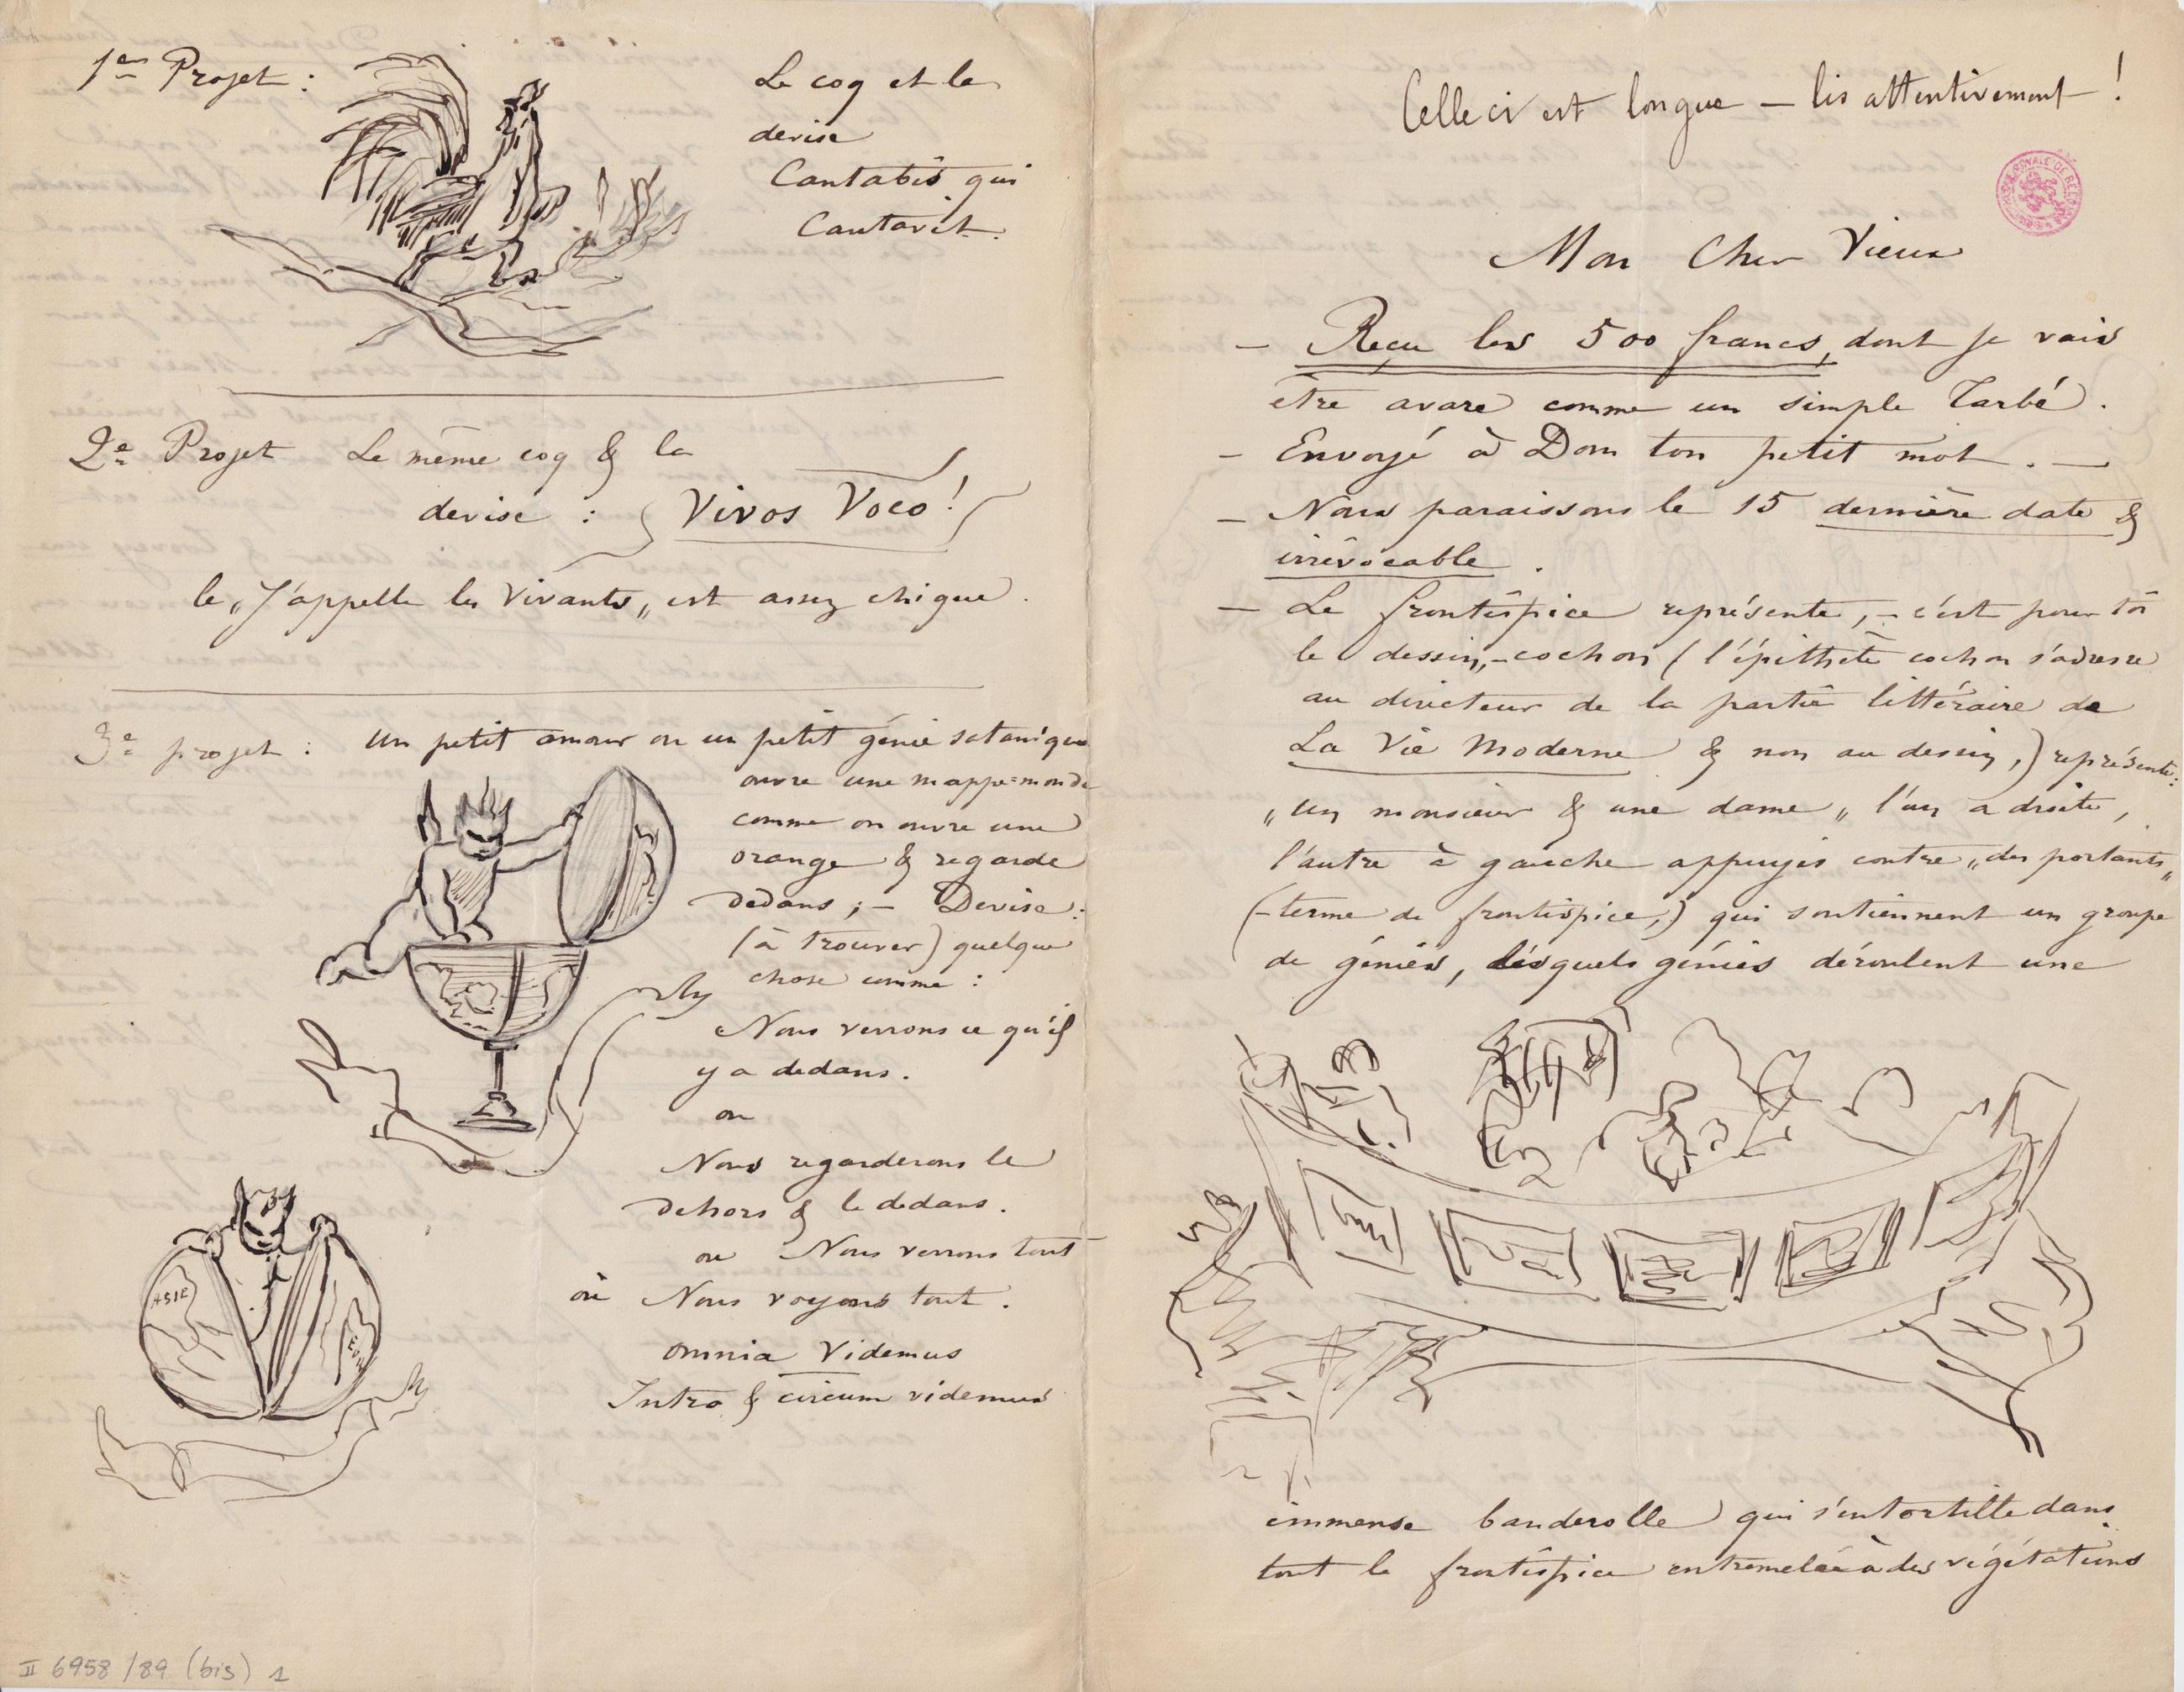 1er Projet :
Le coq et la
devise
Cantabit qui
Cantavit.
2e Projet Le même coq & la
devise : Vivos Voco !
le „J'appelle les Vivants„ est assez chique.
3e projet : Un petit amour ou un petit génie satanique
ouvre une mappe=monde
comme on ouvre une
orange & regarde
dedans ; – Devise :
(à trouver) quelque
chose comme :
Nous verrons ce qu'il
y a dedans.
ou
Nous regarderons le
dehors & le dedans.
ou Nous verrons tout
ou Nous voyons tout.
omnia Videmus
Intro & circum videmus
ASIE
II 6958 /89 (bis) 1
Celle ci est longue – lis attentivement !
Mon Cher Vieux
– Reçu les 500 francs, dont je vais
être avare comme un simple Tarbé.
– Envoyé à Dom ton petit mot. –
– Nous paraissons le 15 dernière date &
irrévocable.
– Le frontispice représente, – c'est pour toi
le dessin, – cochon (l'épithète cochon s'adresse
au directeur de la partie littéraire de
La Vie Moderne & non au dessin,) représente :
„un monsieur & une dame„ l'un a droite,
l'autre à gauche appuyés contre „des portants„
(– terme de frontispice,) qui soutiennent un groupe
de génies, lesquels génies déroulent une
immense banderolle qui s'entortille dans
tout le frontispice entremelée à des végétations